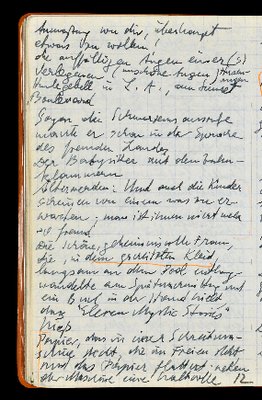 Anmaßung von dir, überhaupt
etwas von wollen!
die auffälligen Augen einer
Verlegenen (unschöne Augen)
Hundegebell in L. A., am Sunset
Boulevard
Gegen die Schmerzensausrufe
macht er schon in der Sprache
des fremden Landes
Der Babysitter mit den Zahn-
klammern
Älterwerden: Und auch die Kinder
scheinen von einem was zu er-
warten; man ist ihnen nicht mehr
so fremd
Die schöne, geheimnisvolle Frau,
die, in dem geschlitzten Kleid,
langsam an dem Pool entlang-
wandelte am Spätnachmittag mit
ein Buch in der Hand hielt
das "Eleven Mystic Stories"
hieß
Papier, das in einer Schreibma-
schine steckt, die im Freien steht
und das Papier flattert; neben
der Maschine eine halbvolle 12